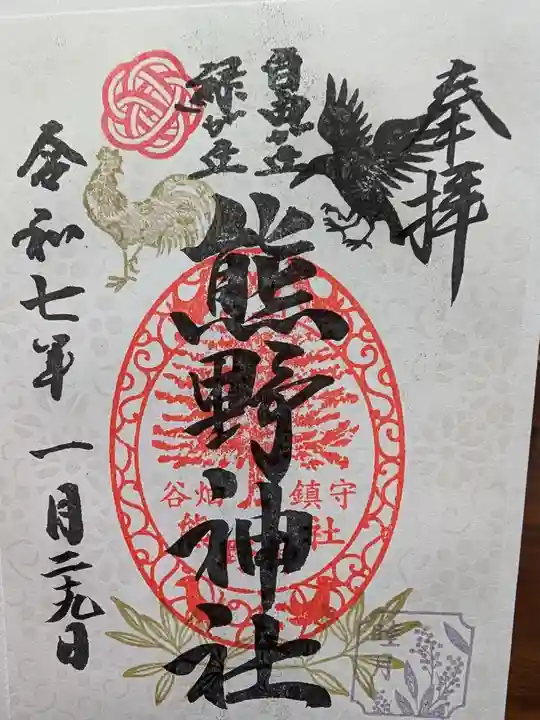 奉拝
自由が丘
緑が丘
熊野神社
谷畑 鎮守
熊 社
令和七年 一月二十九日
睦月